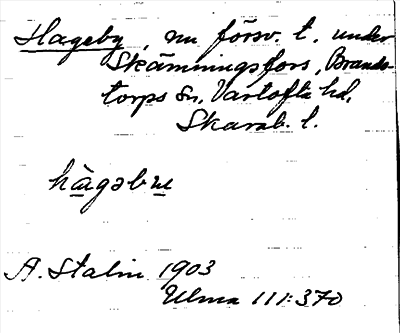 Hageby, nu försv. t. under
Skämningsfors, Brands-
torps sn, Vartofta hd,
Skarab. l.
hàgəbɯ
A. Stalin 1903
Ulma 111:370